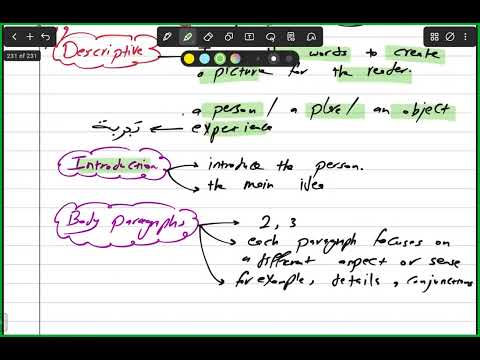 231 of 231
Descriptive
words to create
a picture for the reader.
a person / a place / an object
experience ← تجربة
Introduction
introduce the person.
the main idea
Body paragraphs
2, 3
each paragraph focuses on
a different aspect or sense
for example, details, conjunctions